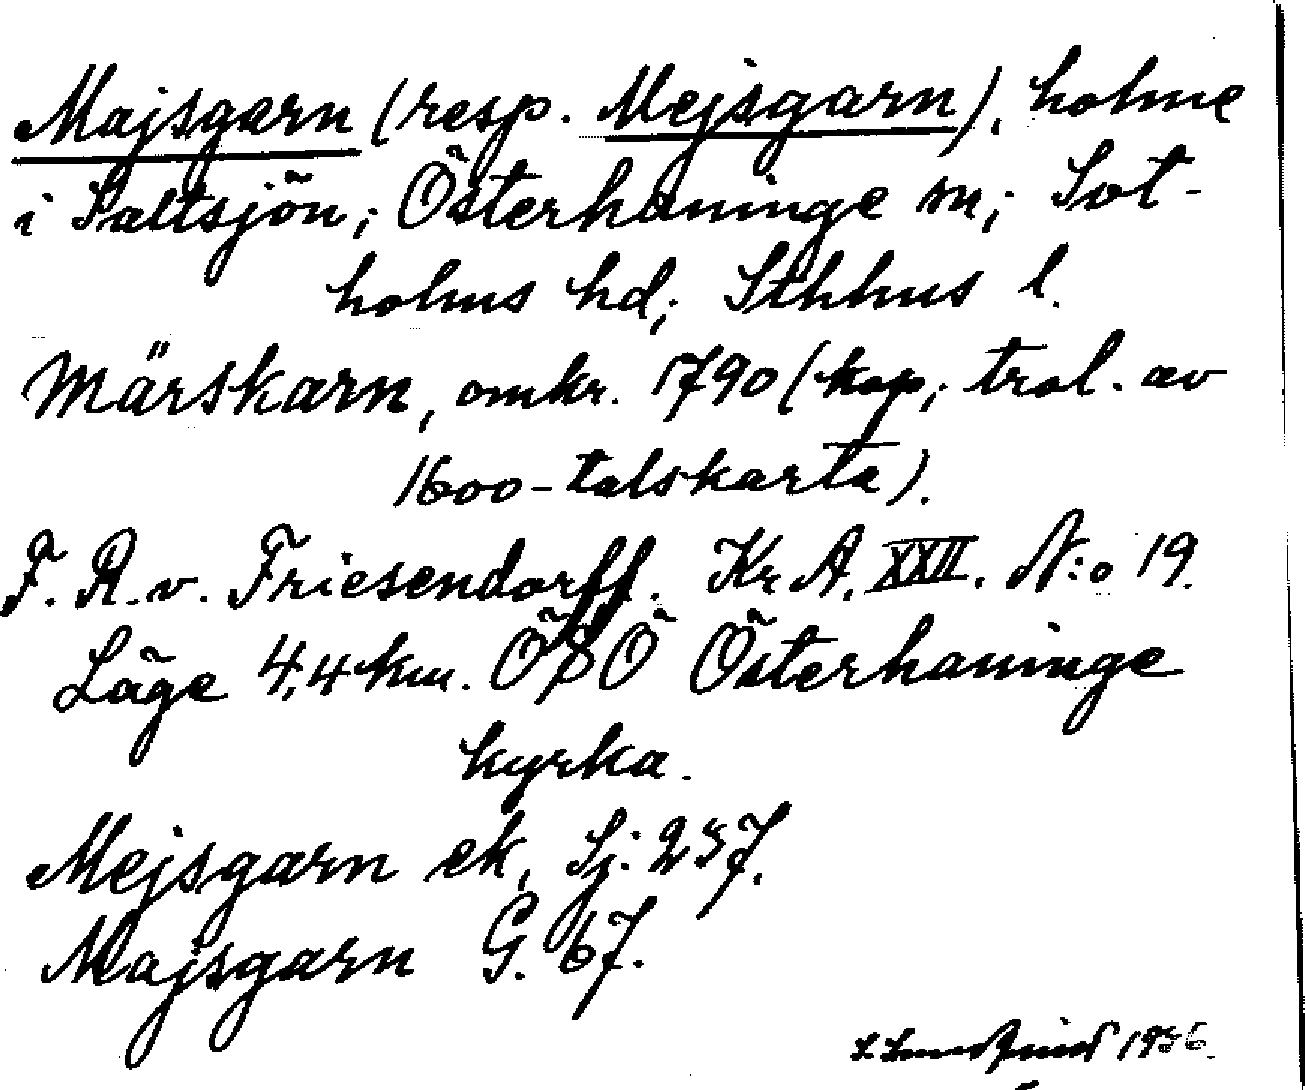 Majsgarn (resp. Mejsgarn), holme
i Saltsjön; Österhaninge sn; Sot-
holms hd; Sthhus l.
Märskarn, omkr. 1790 (kop; trol. av
1600-talskarta).
F. R. v. Friesendorff. Kr. A. XXII. N:o 19.
Läge 4,4 km. ÖSÖ Österhaninge
kyrka.
Mejsgarn ek, Sj: 257.
Majsgarn G. 67.
1956.